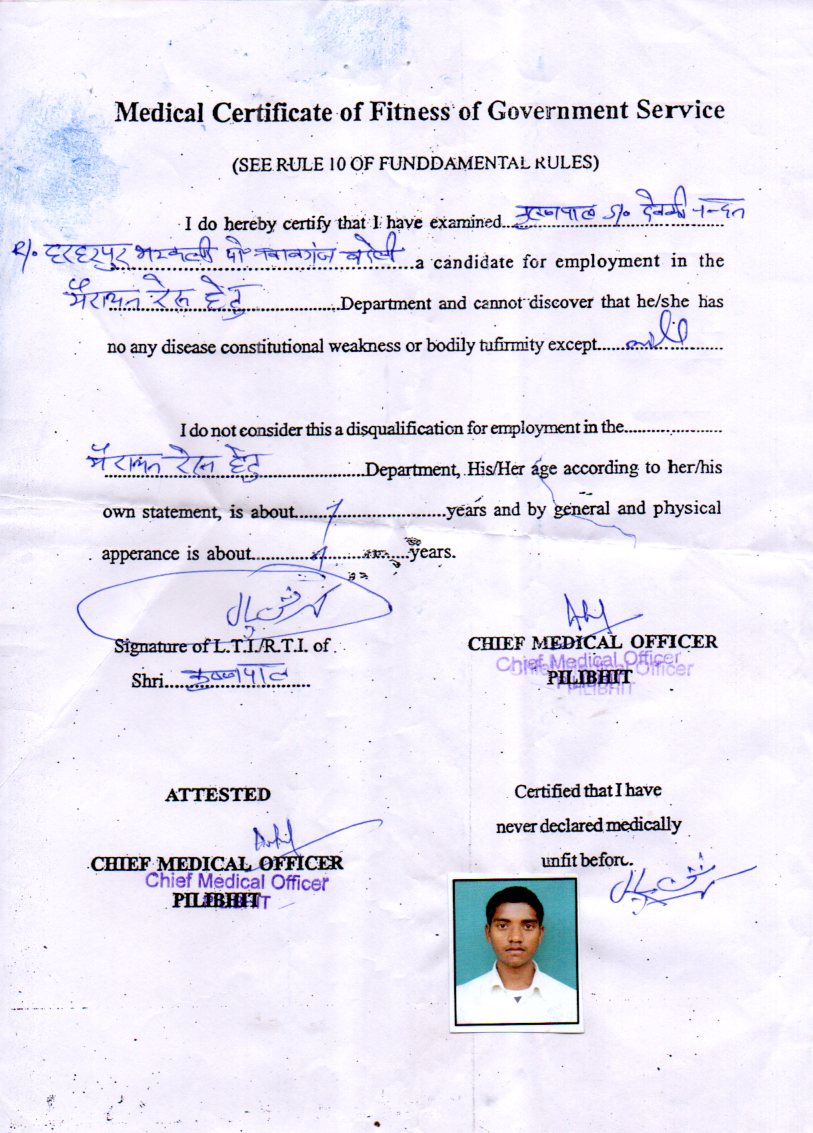 Medical Certificate of Fitness of Government Service
(SEE RULE 10 OF FUNDDAMENTAL RULES)
I do hereby certify that I have examined..कृष्णपाल S/o देवकी नन्दन
R/o हरहरपुर पो नवाबगंज बरेली a candidate for employment in the
हेतु Department and cannot discover that he/she has
no any disease constitutional weakness or bodily tufirmity except......nil
I do not consider this a disqualification for employment in the......................
हेतु Department, His/Her age according to her/his
own statement, is about.............................years and by general and physical
apperance is about.............................years.
Signature of L.T.I./R.T.I. of
Shri....कृष्णपाल
CHIEF MEDICAL OFFICER
Chief Medical Officer
PILIBHIT
ATTESTED
CHIEF MEDICAL OFFICER
Chief Medical Officer
PILIBHIT
Certified that I have
never declared medically
unfit before.